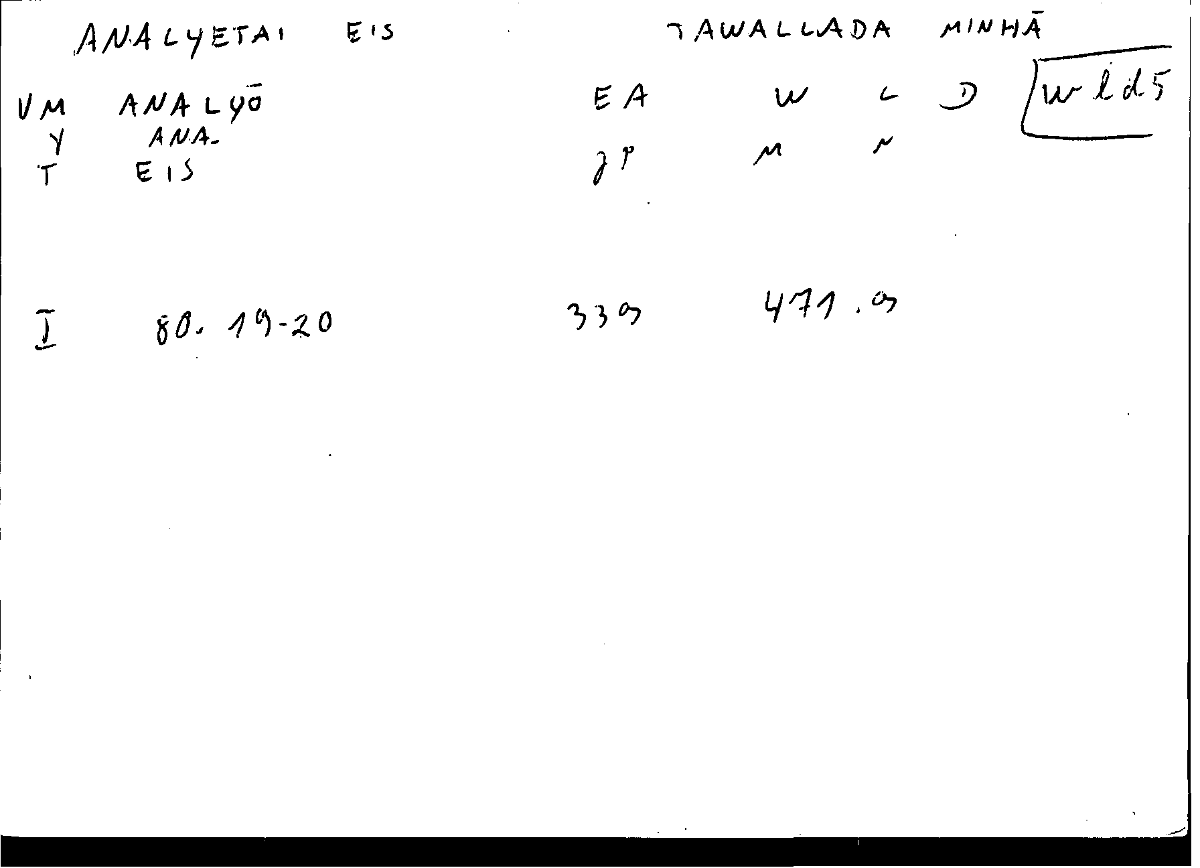 ANALYETAI EIS TAWALLADA MINHĀ
VM ANALYŌ EA W L D wld5
Y ANA.
T EIS JP M N
I 80. 19-20 339 471.9